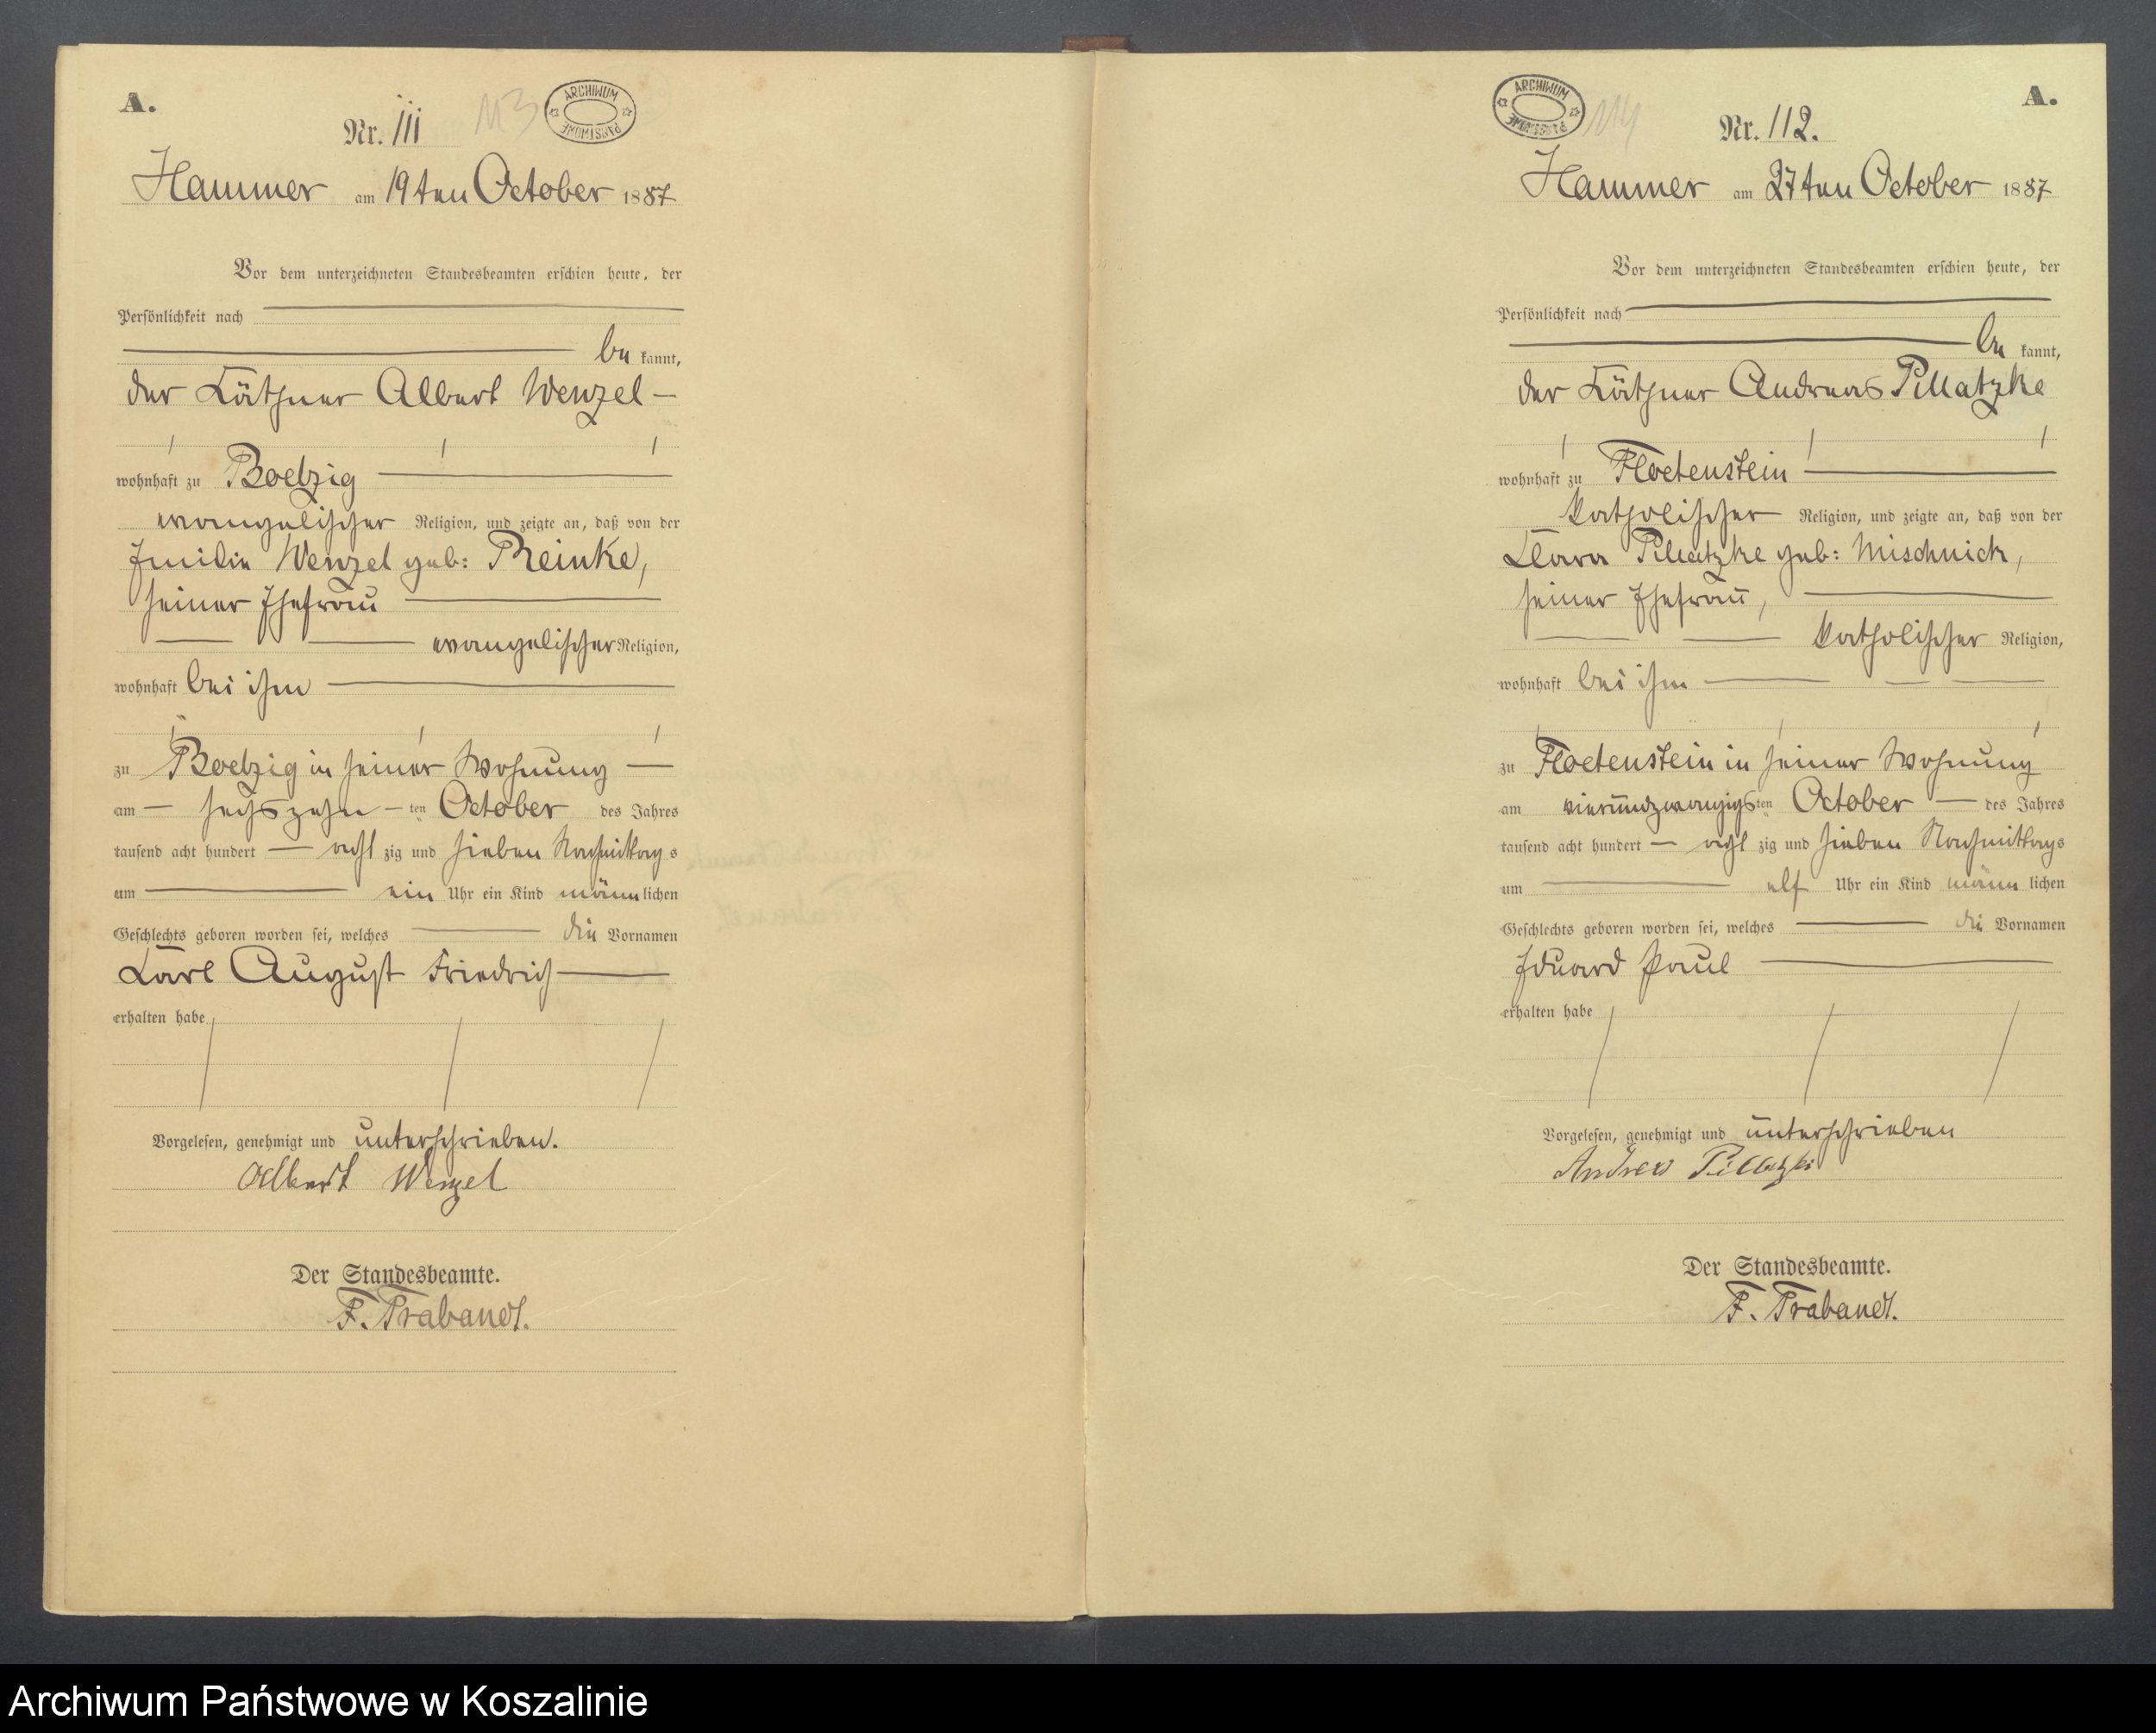 A.
Nr. 111
113
ARCHIWUM PAŃSTWOWE
Hammer am 19ten October 1887
Vor dem unterzeichneten Standesbeamten erschien heute, der
Persönlichkeit nach
be kannt,
der Käthner Albert Wenzel
wohnhaft zu Boelzig
evangelischer Religion, und zeigte an, daß von der
Emilie Wenzel geb: Reinke,
seiner Ehefrau
evangelischer Religion,
wohnhaft bei ihm
zu Boelzig in seiner Wohnung
am sechszehn ten October des Jahres
tausend acht hundert acht zig und sieben Nachmittag s
um ein Uhr ein Kind männ lichen
Geschlechts geboren worden sei, welches die Vornamen
Karl August Friedrich
erhalten habe
Vorgelesen, genehmigt und unterschrieben.
Albert Wenzel
Der Standesbeamte.
F. Trabandt.
ARCHIWUM PAŃSTWOWE
114
A.
Nr. 112.
Hammer am 27ten October 1887
Vor dem unterzeichneten Standesbeamten erschien heute, der
Persönlichkeit nach
be kannt,
der Käthner Andreas Pillatzke
wohnhaft zu Floetenstein
katholischer Religion, und zeigte an, daß von der
Clara Pillatzke geb: Mischnick,
seiner Ehefrau,
katholischer Religion,
wohnhaft bei ihm
zu Floetenstein in seiner Wohnung
am vierundzwanzigs ten October des Jahres
tausend acht hundert acht zig und sieben Nachmittags
um elf Uhr ein Kind männ lichen
Geschlechts geboren worden sei, welches die Vornamen
Eduard Paul
erhalten habe
Vorgelesen, genehmigt und unterschrieben
Andreas Pillatzki
Der Standesbeamte.
F. Trabandt.
Archiwum Państwowe w Koszalinie